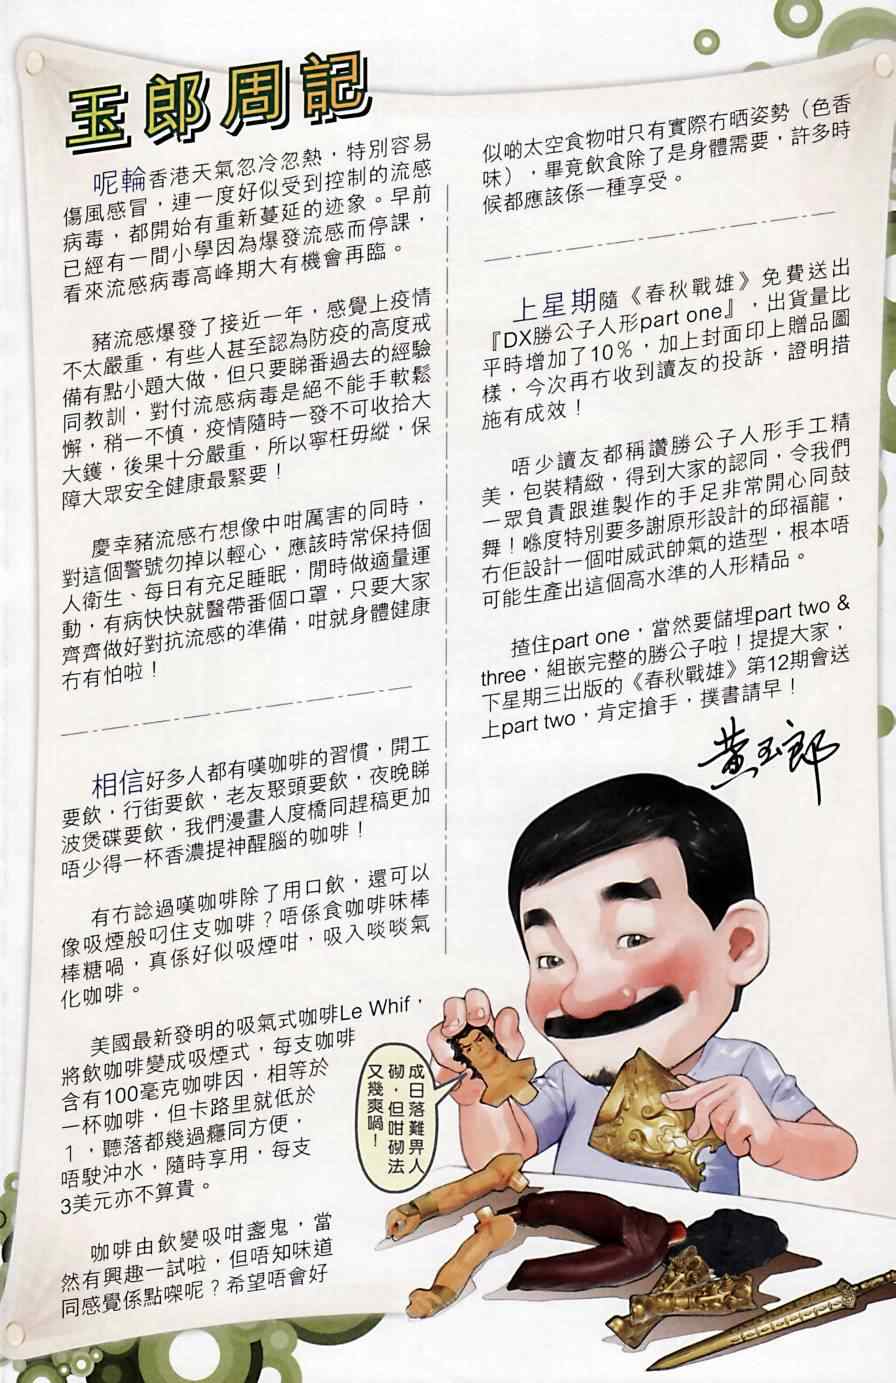 玉郎周記
呢輪香港天氣忽冷忽熱，特別容易
傷風感冒，連一度好似受到控制的流感
病毒，都開始有重新蔓延的迹象。早前
已經有一間小學因為爆發流感而停課，
看來流感病毒高峰期大有機會再臨。
豬流感爆發了接近一年，感覺上疫情
不太嚴重，有些人甚至認為防疫的高度戒
備有點小題大做，但只要睇番過去的經驗
同教訓，對付流感病毒是絕不能手軟鬆
懈，稍一不慎，疫情隨時一發不可收拾大
大鑊，後果十分嚴重，所以寧枉毋縱，保
障大眾安全健康最緊要！
慶幸豬流感冇想像中咁厲害的同時，
對這個警號勿掉以輕心，應該時常保持個
人衛生、每日有充足睡眠，閒時做適量運
動，有病快快就醫帶番個口罩，只要大家
齊齊做好對抗流感的準備，咁就身體健康
冇有怕啦！
相信好多人都有嘆咖啡的習慣，開工
要飲，行街要飲，老友聚頭要飲，夜晚睇
波煲碟要飲，我們漫畫人度橋同趕稿更加
唔少得一杯香濃提神醒腦的咖啡！
有冇諗過嘆咖啡除了用口飲，還可以
像吸煙般叼住支咖啡？唔係食咖啡味棒
棒糖喎，真係好似吸煙咁，吸入啖啖氣
化咖啡。
美國最新發明的吸氣式咖啡Le Whif，
將飲咖啡變成吸煙式，每支咖啡
含有100毫克咖啡因，相等於
一杯咖啡，但卡路里就低於
１，聽落都幾過癮同方便，
唔駛沖水，隨時享用，每支
3美元亦不算貴。
咖啡由飲變吸咁盞鬼，當
然有興趣一試啦，但唔知味道
同感覺係點㗎呢？希望唔會好
似啲太空食物咁只有實際冇晒姿勢（色香
味），畢竟飲食除了是身體需要，許多時
候都應該係一種享受。
上星期隨《春秋戰雄》免費送出
『DX勝公子人形part one』，出貨量比
平時增加了10％，加上封面印上贈品圖
樣，今次再冇收到讀友的投訴，證明措
施有成效！
唔少讀友都稱讚勝公子人形手工精
美，包裝精緻，得到大家的認同，令我們
一眾負責跟進製作的手足非常開心同鼓
舞！喺度特別要多謝原形設計的邱福龍，
冇佢設計一個咁威武帥氣的造型，根本唔
可能生產出這個高水準的人形精品。
揸住part one，當然要儲埋part two &
three，組嵌完整的勝公子啦！提提大家，
下星期三出版的《春秋戰雄》第12期會送
上part two，肯定搶手，撲書請早！
黃玉郎
成日落難畀人
砌，但咁砌法
又幾爽喎！